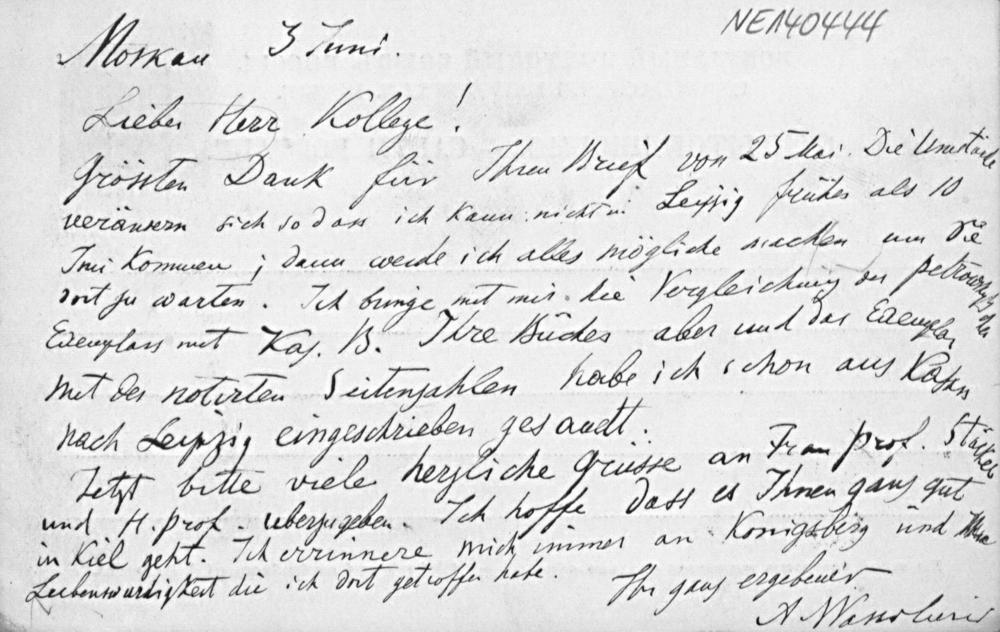 NE140444
Moskau 3 Juni.
Lieber Herr Kollege!
Grössten Dank für Ihren Brief von 25 Mai. Die Umstände
verändern sich so dass ich kann nicht in Leipzig früher als 10
Juni kommen; dann werde ich alles mögliche machen um Sie
dort zu warten. Ich bringe mit mir die Vergleichung des
Exemplars mit Kas. B. Ihre Bücher aber und das Exemplar
mit den notirten Seitenzahlen habe ich schon aus Kasan
nach Leipzig eingeschrieben gesandt.
Jetzt bitte viele herzliche Grüsse an Frau Prof. Stäckel
und H. Prof. überzugeben. Ich hoffe dass es Ihnen ganz gut
in Kiel geht. Ich errinnere mich immer an Königsberg und
Liebenswürdigkeit die ich dort getroffen habe.
Ihr ganz ergebener
A